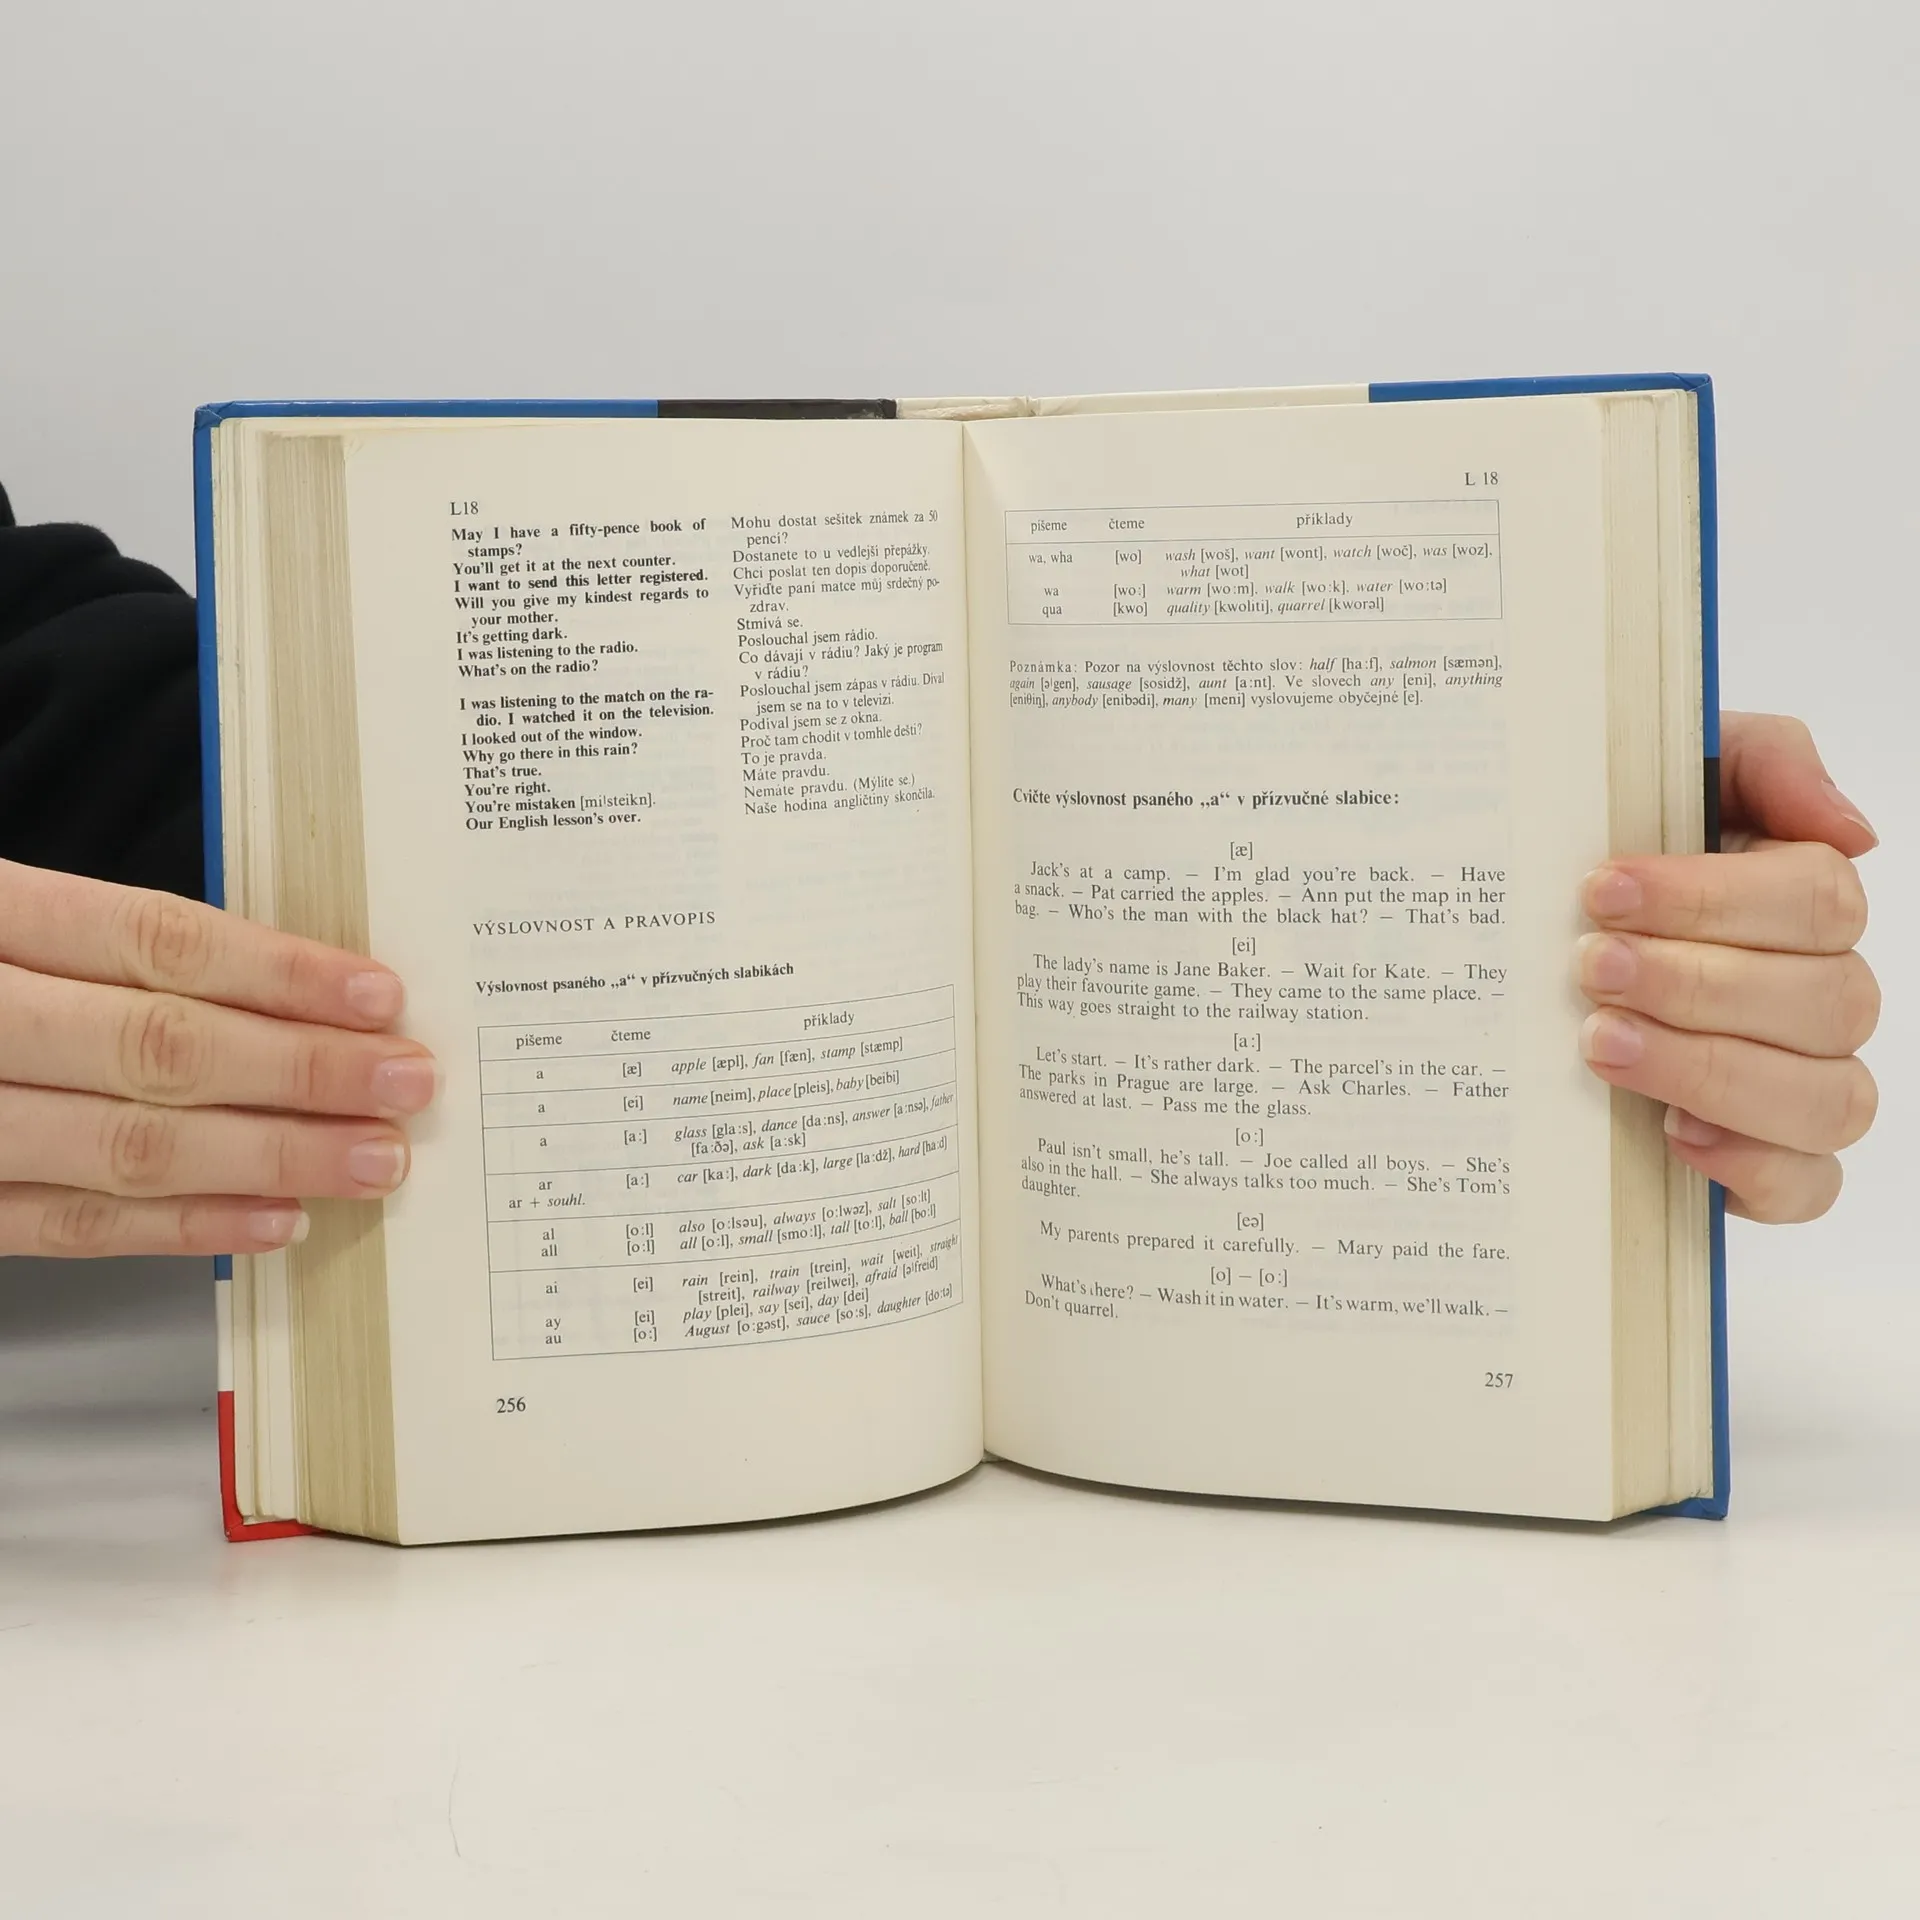 L18
May I have a fifty-pence book of
stamps?
You'll get it at the next counter.
I want to send this letter registered.
Will you give my kindest regards to
your mother.
It's getting dark.
I was listening to the radio.
What's on the radio?
I was listening to the match on the ra-
dio. I watched it on the television.
I looked out of the window.
Why go there in this rain?
That's true.
You're right.
You're mistaken [miˈsteikn].
Our English lesson's over.
Mohu dostat sešitek známek za 50
pencí?
Dostanete to u vedlejší přepážky.
Chci poslat ten dopis doporučeně.
Vyřiďte paní matce můj srdečný po-
zdrav.
Stmívá se.
Poslouchal jsem rádio.
Co dávají v rádiu? Jaký je program
v rádiu?
Poslouchal jsem zápas v rádiu. Díval
jsem se na to v televizi.
Podíval jsem se z okna.
Proč tam chodit v tomhle dešti?
To je pravda.
Máte pravdu.
Nemáte pravdu. (Mýlíte se.)
Naše hodina angličtiny skončila.
VÝSLOVNOST A PRAVOPIS
Výslovnost psaného „a“ v přízvučných slabikách
píšeme čteme příklady
a [æ] apple [æpl], fan [fæn], stamp [stæmp]
a [ei] name [neim], place [pleis], baby [beibi]
a [a:] glass [gla:s], dance [da:ns], answer [a:nsə], father
[fa:ðə], ask [a:sk]
ar [a:] car [ka:], dark [da:k], large [la:dž], hard [ha:d]
ar + souhl.
al [o:l] also [o:lsəu], always [o:lwəz], salt [so:lt]
all [o:l] all [o:l], small [smo:l], tall [to:l], ball [bo:l]
ai [ei] rain [rein], train [trein], wait [weit], straight
[streit], railway [reilwei], afraid [əˈfreid]
ay [ei] play [plei], say [sei], day [dei]
au [o:] August [o:gəst], sauce [so:s], daughter [do:tə]
256
L 18
píšeme čteme příklady
wa, wha [wo] wash [woš], want [wont], watch [woč], was [woz],
what [wot]
wa [wo:] warm [wo:m], walk [wo:k], water [wo:tə]
qua [kwo] quality [kwoliti], quarrel [kworəl]
Poznámka: Pozor na výslovnost těchto slov: half [ha:f], salmon [sæmən],
again [əˈgen], sausage [sosidž], aunt [a:nt]. Ve slovech any [eni], anything
[eniθiŋ], anybody [enibədi], many [meni] vyslovujeme obyčejně [e].
Cvičte výslovnost psaného „a“ v přízvučné slabice:
[æ]
Jack's at a camp. — I'm glad you're back. — Have
a snack. — Pat carried the apples. — Ann put the map in her
bag. — Who's the man with the black hat? — That's bad.
[ei]
The lady's name is Jane Baker. — Wait for Kate. — They
play their favourite game. — They came to the same place. —
This way goes straight to the railway station.
[a:]
Let's start. — It's rather dark. — The parcel's in the car. —
The parks in Prague are large. — Ask Charles. — Father
answered at last. — Pass me the glass.
[o:]
Paul isn't small, he's tall. — Joe called all boys. — She's
also in the hall. — She always talks too much. — She's Tom's
daughter.
[eə]
My parents prepared it carefully. — Mary paid the fare.
[o] — [o:]
What's there? — Wash it in water. — It's warm, we'll walk. —
Don't quarrel.
257